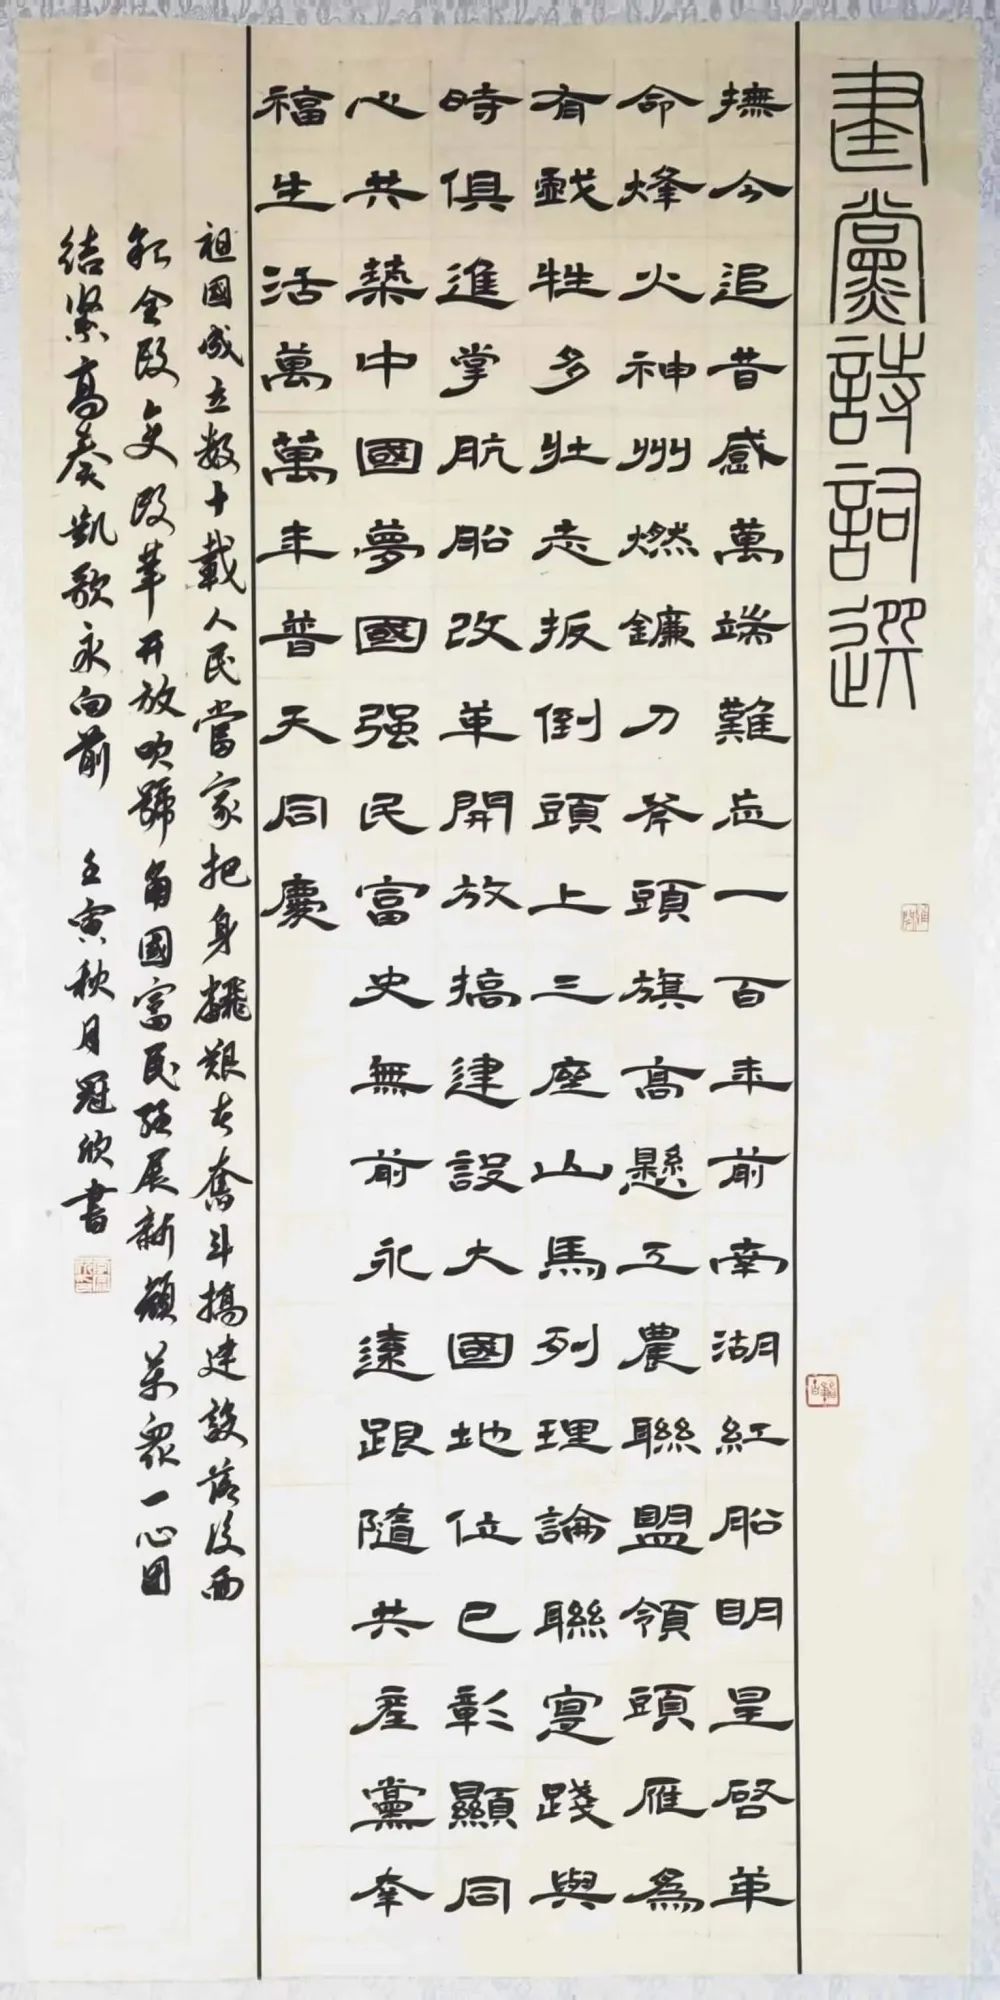 建黨詩詞選
撫今追昔感萬端難忘一百年前南湖紅船明星啓革
命烽火神州燃鐮刀斧頭旗高懸工農聯盟領頭雁爲
有戲牲多壯志扳倒頭上三座山馬列理論聯寔踐與
時俱進掌肮船改革開放搞建設大國地位已彰顯同
心共築中國夢國强民富史無前永遠跟隨共產黨幸
福生活萬萬年普天同慶
祖國成立數十載人民當家把身翻艱苦奮斗搞建設落後面
貌全改变改革开放吹號角國富民强展新顏萬眾一心团
结紧高奏凱歌永向前 壬寅秋月冠欣書